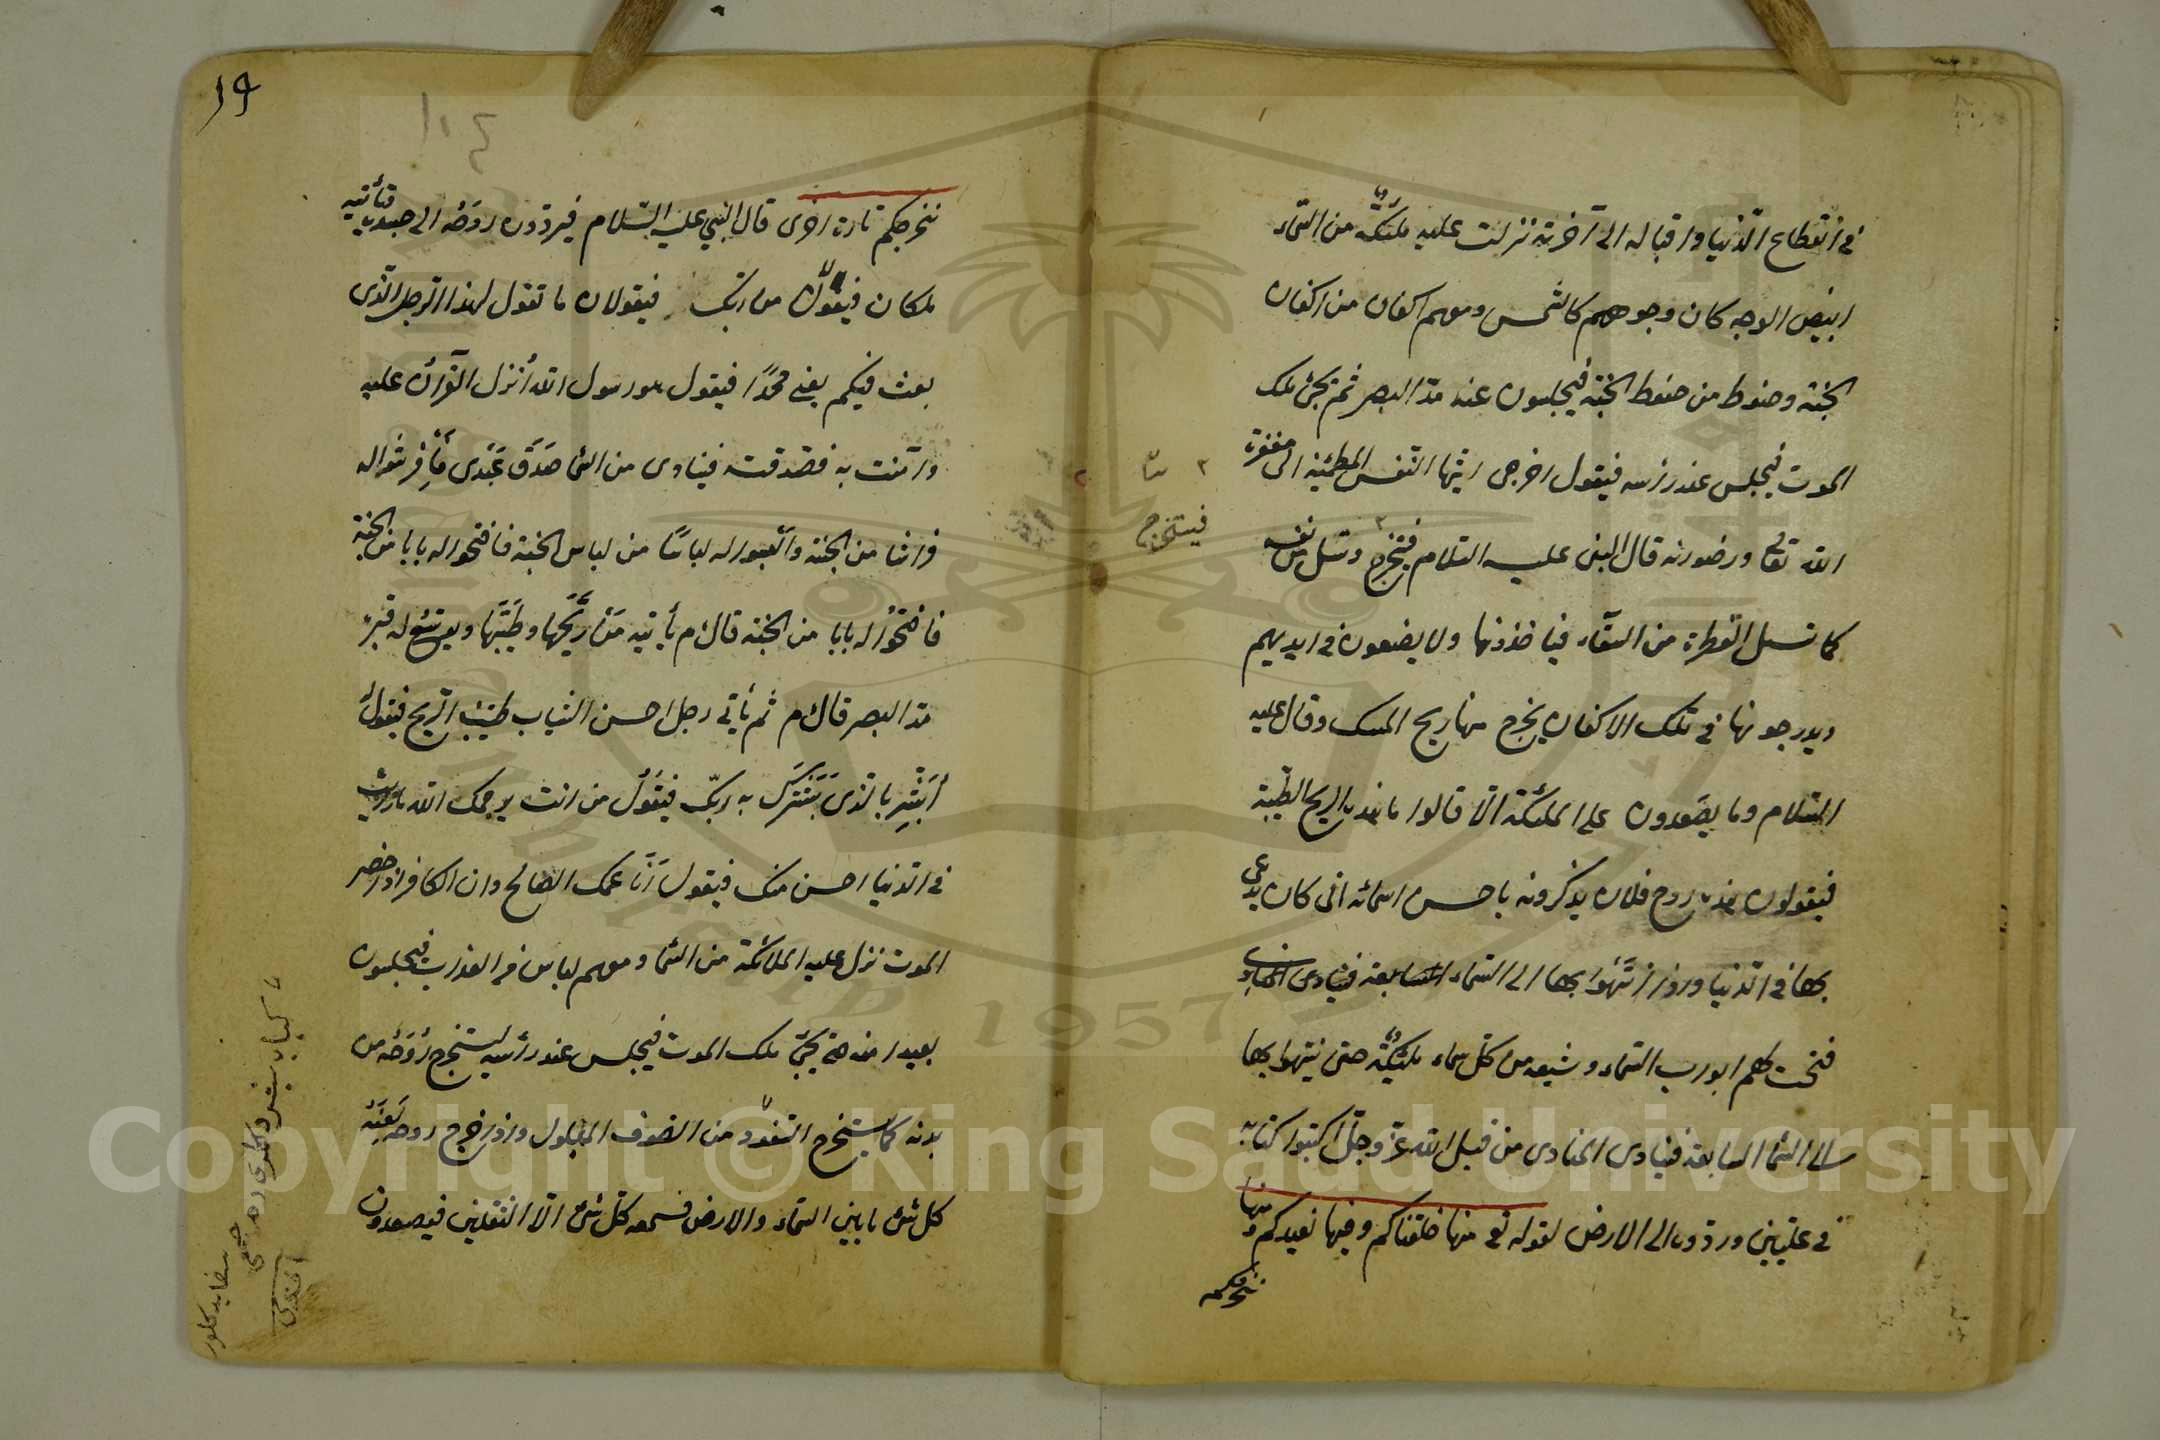 في انقطاع الدنيا واقباله الى آخرته نزلت عليه ملئكة من السماء
ابيض الوجه كان وجوههم كالشمس ومعهم اكفان من اكفان
الجنة وحنوط من حنوط الجنة فيجلسون عنده مد البصر ثم يجئ ملك
الموت فيجلس عند رأسه فيقول اخرجى ايتها النفس المطمئنة الى مغفرة
الله تعالى ورضوانه قال النبى عليه السلام فيخرج وتسل من نفسه
فيستخرج
كما تسل القطرة من السقاء فياخذونها ولا يضعون في ايديهم
ويدرجونها في تلك الاكفان يخرج منها ريح المسك وقال عليه
السلام وما يصعدون على الملئكة الا قالوا ما هذه الريح الطيبة
فيقولون هذه روح فلان يذكرونه باحسن اسمائه التى كان يدعى
بها في الدنيا واذا انتهوا بها الى السماء السابعة فينادى المنادى
فتحت لهم ابواب السماء وشيعه من كل سماء ملئكة حتى ينتهوا بها
الى السما السابعة فينادى المنادى من قبل الله عز وجل اكتبوا كتابه
في عليين وردوه الى الارض لقوله تع منها خلقناكم وفيها نعيدكم ومنها
نخرجكم
١٩
١٠٤
نخرجكم تارة اخرى قال النبي عليه السلام فيردون روحه الى جسده فتأتيه
ملكان فيقولان من ربك فيقولان ما تقول لهذا الرجل الذى
بعث فيكم يعني محمدا فيقول هو رسول الله انزل القرآن عليه
وآمنت به فصدقته فينادى من السما صدق عبدى فافرشوا له
فراشا من الجنة والبسوا له لباسا من لباس الجنة فافتحوا له بابا من الجنة
فافتحوا له بابا من الجنة قال م يأتيه من ريحها وطيبها ويوسع له قبره
مد البصر قال م ثم يأتي رجل احسن الثياب طيب الريح فيقول
أبشر بالذى بشرك به ربك فيقول من انت يرحمك الله ما رأيت
في الدنيا احسن منك فيقول انا عملك الصالح وان الكافر اذا حضر
الموت نزل عليه الملائكة من السما ومعهم لباس من العذاب فيجلسون
بعيدا منه حتى يجئ ملك الموت فيجلس عند رأسه ليستخرج روحه من
بدنه كما يستخرج السفود من الصوف المبلول واذا خرج روحه يلعنه
كل شئ ما بين السماء والارض فسمعه كل شئ الا الثقلين فيصعدون